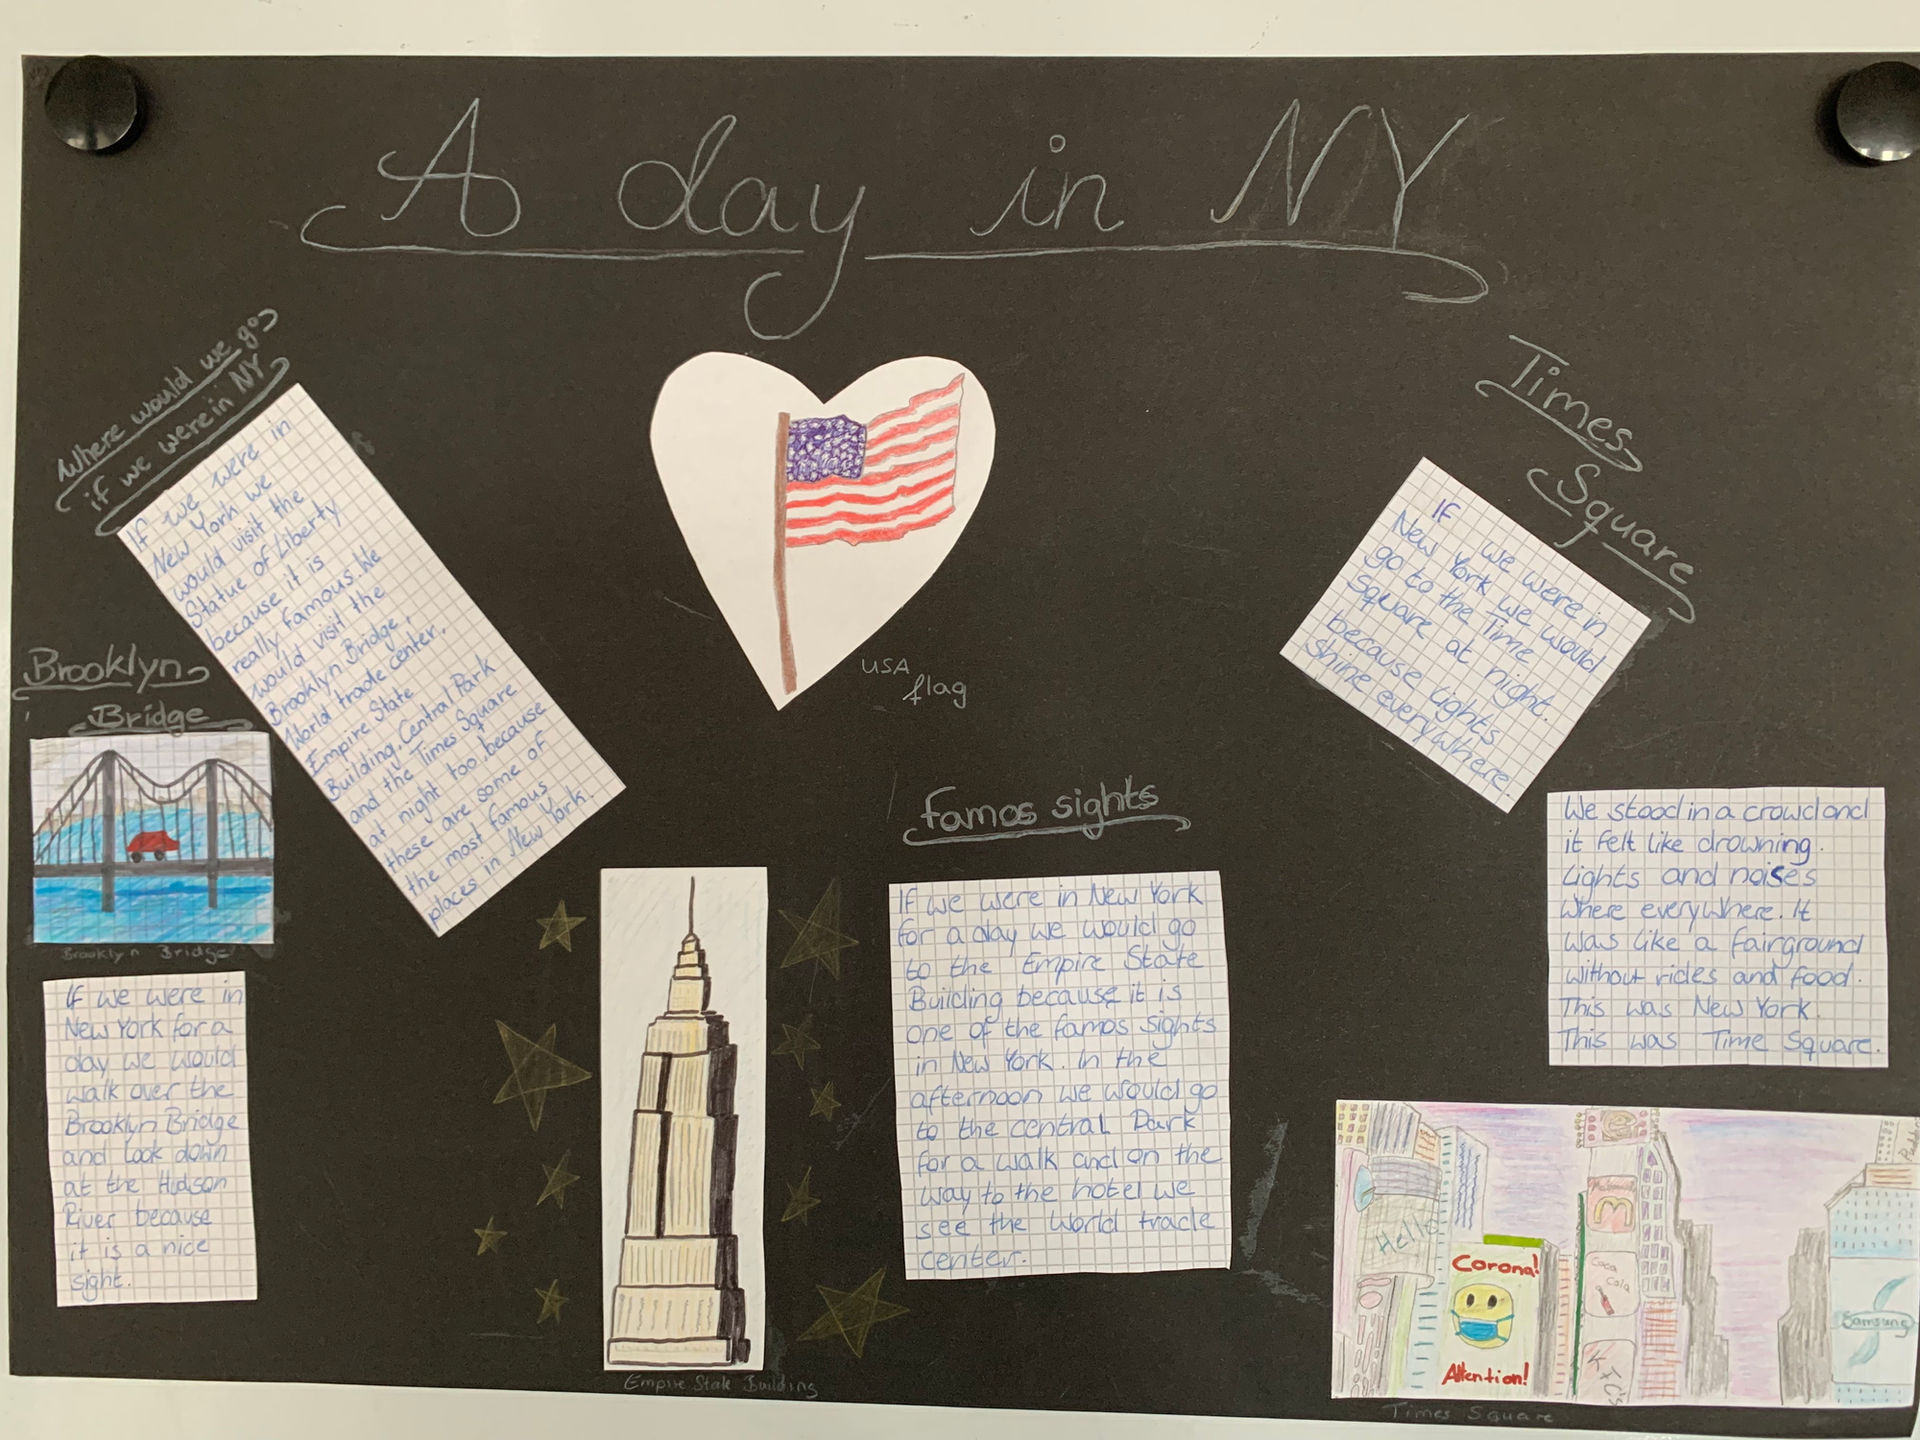 A day in NY
Where would we go
if we were in NY
If we were in
New York we
would visit the
Statue of Liberty
because it is
really famous. We
would visit the
Brooklyn Bridge,
World trade center,
Empire State
Building, Central Park
and the Times Square
at night too, because
these are some of
the most famous
places in New York.
Brooklyn
Bridge
Brooklyn Bridge
If we were in
New York for a
day we would
walk over the
Brooklyn Bridge
and look down
at the Hudson
River because
it is a nice
sight.
USA
flag
Empire State Building
Famos sights
If we were in New York
for a day we would go
to the Empire State
Building because it is
one of the famos sights
in New York. In the
afternoon we would go
to the central Park
for a walk and on the
way to the hotel we
see the World trade
center.
Times
Square
If we were in
New York we would
go to the Time
Square at night.
because Lights
shine everywhere.
We stood in a crowd and
it felt like drowning.
Lights and noises
where everywhere. It
was like a fairground
without rides and food.
This was New York.
This was Time Square.
Hello
Corona!
Attention!
McDonald's
Coca
Cola
Samsung
Times Square